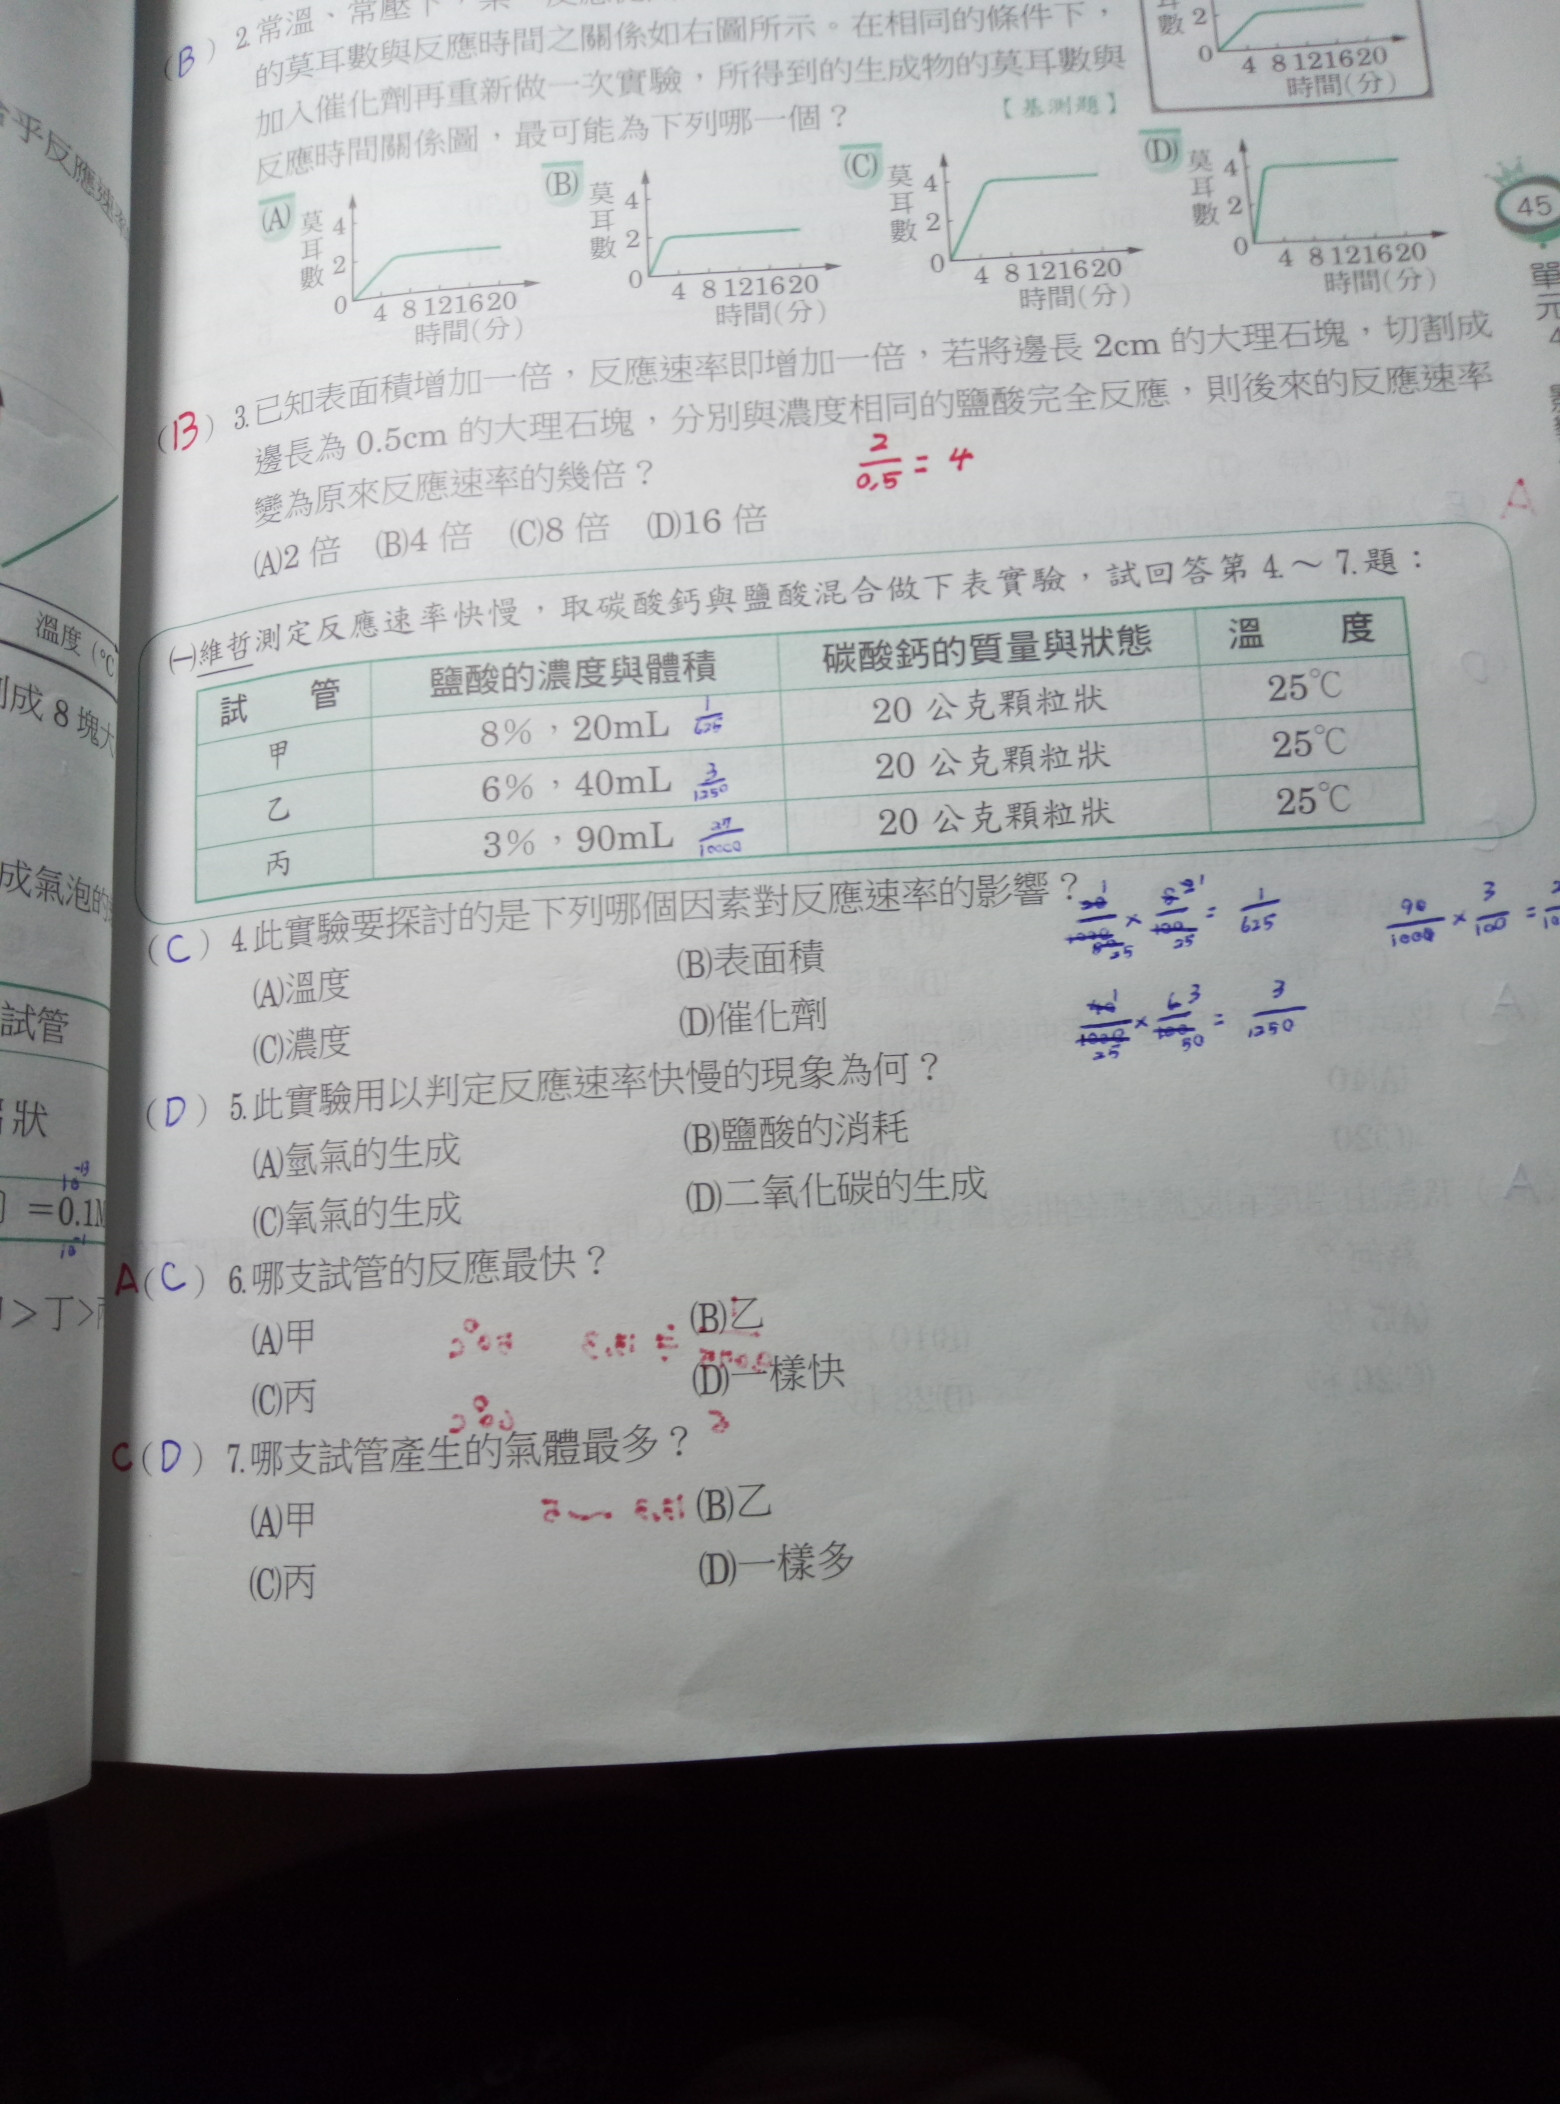 (B) 2.常溫、常壓下,
的莫耳數與反應時間之關係如右圖所示。在相同的條件下,
加入催化劑再重新做一次實驗,所得到的生成物的莫耳數與
反應時間關係圖,最可能為下列哪一個?【基測題】
數 2
0 4 8 12 16 20
時間(分)
(A) 莫耳數 4 2 0 4 8 12 16 20 時間(分)
(B) 莫耳數 4 2 0 4 8 12 16 20 時間(分)
(C) 莫耳數 4 2 0 4 8 12 16 20 時間(分)
(D) 莫耳數 4 2 0 4 8 12 16 20 時間(分)
45
單元4
(B) 3.已知表面積增加一倍,反應速率即增加一倍,若將邊長 2cm 的大理石塊,切割成
邊長為 0.5cm 的大理石塊,分別與濃度相同的鹽酸完全反應,則後來的反應速率
變為原來反應速率的幾倍?
2/0.5 = 4
(A)2 倍 (B)4 倍 (C)8 倍 (D)16 倍
(一)維哲測定反應速率快慢,取碳酸鈣與鹽酸混合做下表實驗,試回答第 4.～7.題:
試管 鹽酸的濃度與體積 碳酸鈣的質量與狀態 溫度
甲 8%,20mL 1/625 20 公克顆粒狀 25℃
乙 6%,40mL 3/1250 20 公克顆粒狀 25℃
丙 3%,90mL 27/10000 20 公克顆粒狀 25℃
(C) 4.此實驗要探討的是下列哪個因素對反應速率的影響?
(A)溫度 (B)表面積
(C)濃度 (D)催化劑
= 1/625
90/1000 × 3/100 =
= 3/1250
(D) 5.此實驗用以判定反應速率快慢的現象為何?
(A)氫氣的生成 (B)鹽酸的消耗
(C)氧氣的生成 (D)二氧化碳的生成
A (C) 6.哪支試管的反應最快?
(A)甲 (B)乙
(C)丙 (D)一樣快
C (D) 7.哪支試管產生的氣體最多?
(A)甲 (B)乙
(C)丙 (D)一樣多
乎反應速率
溫度 (℃
成 8 塊大
成氣泡的
試管
狀
=0.1M
>丁>